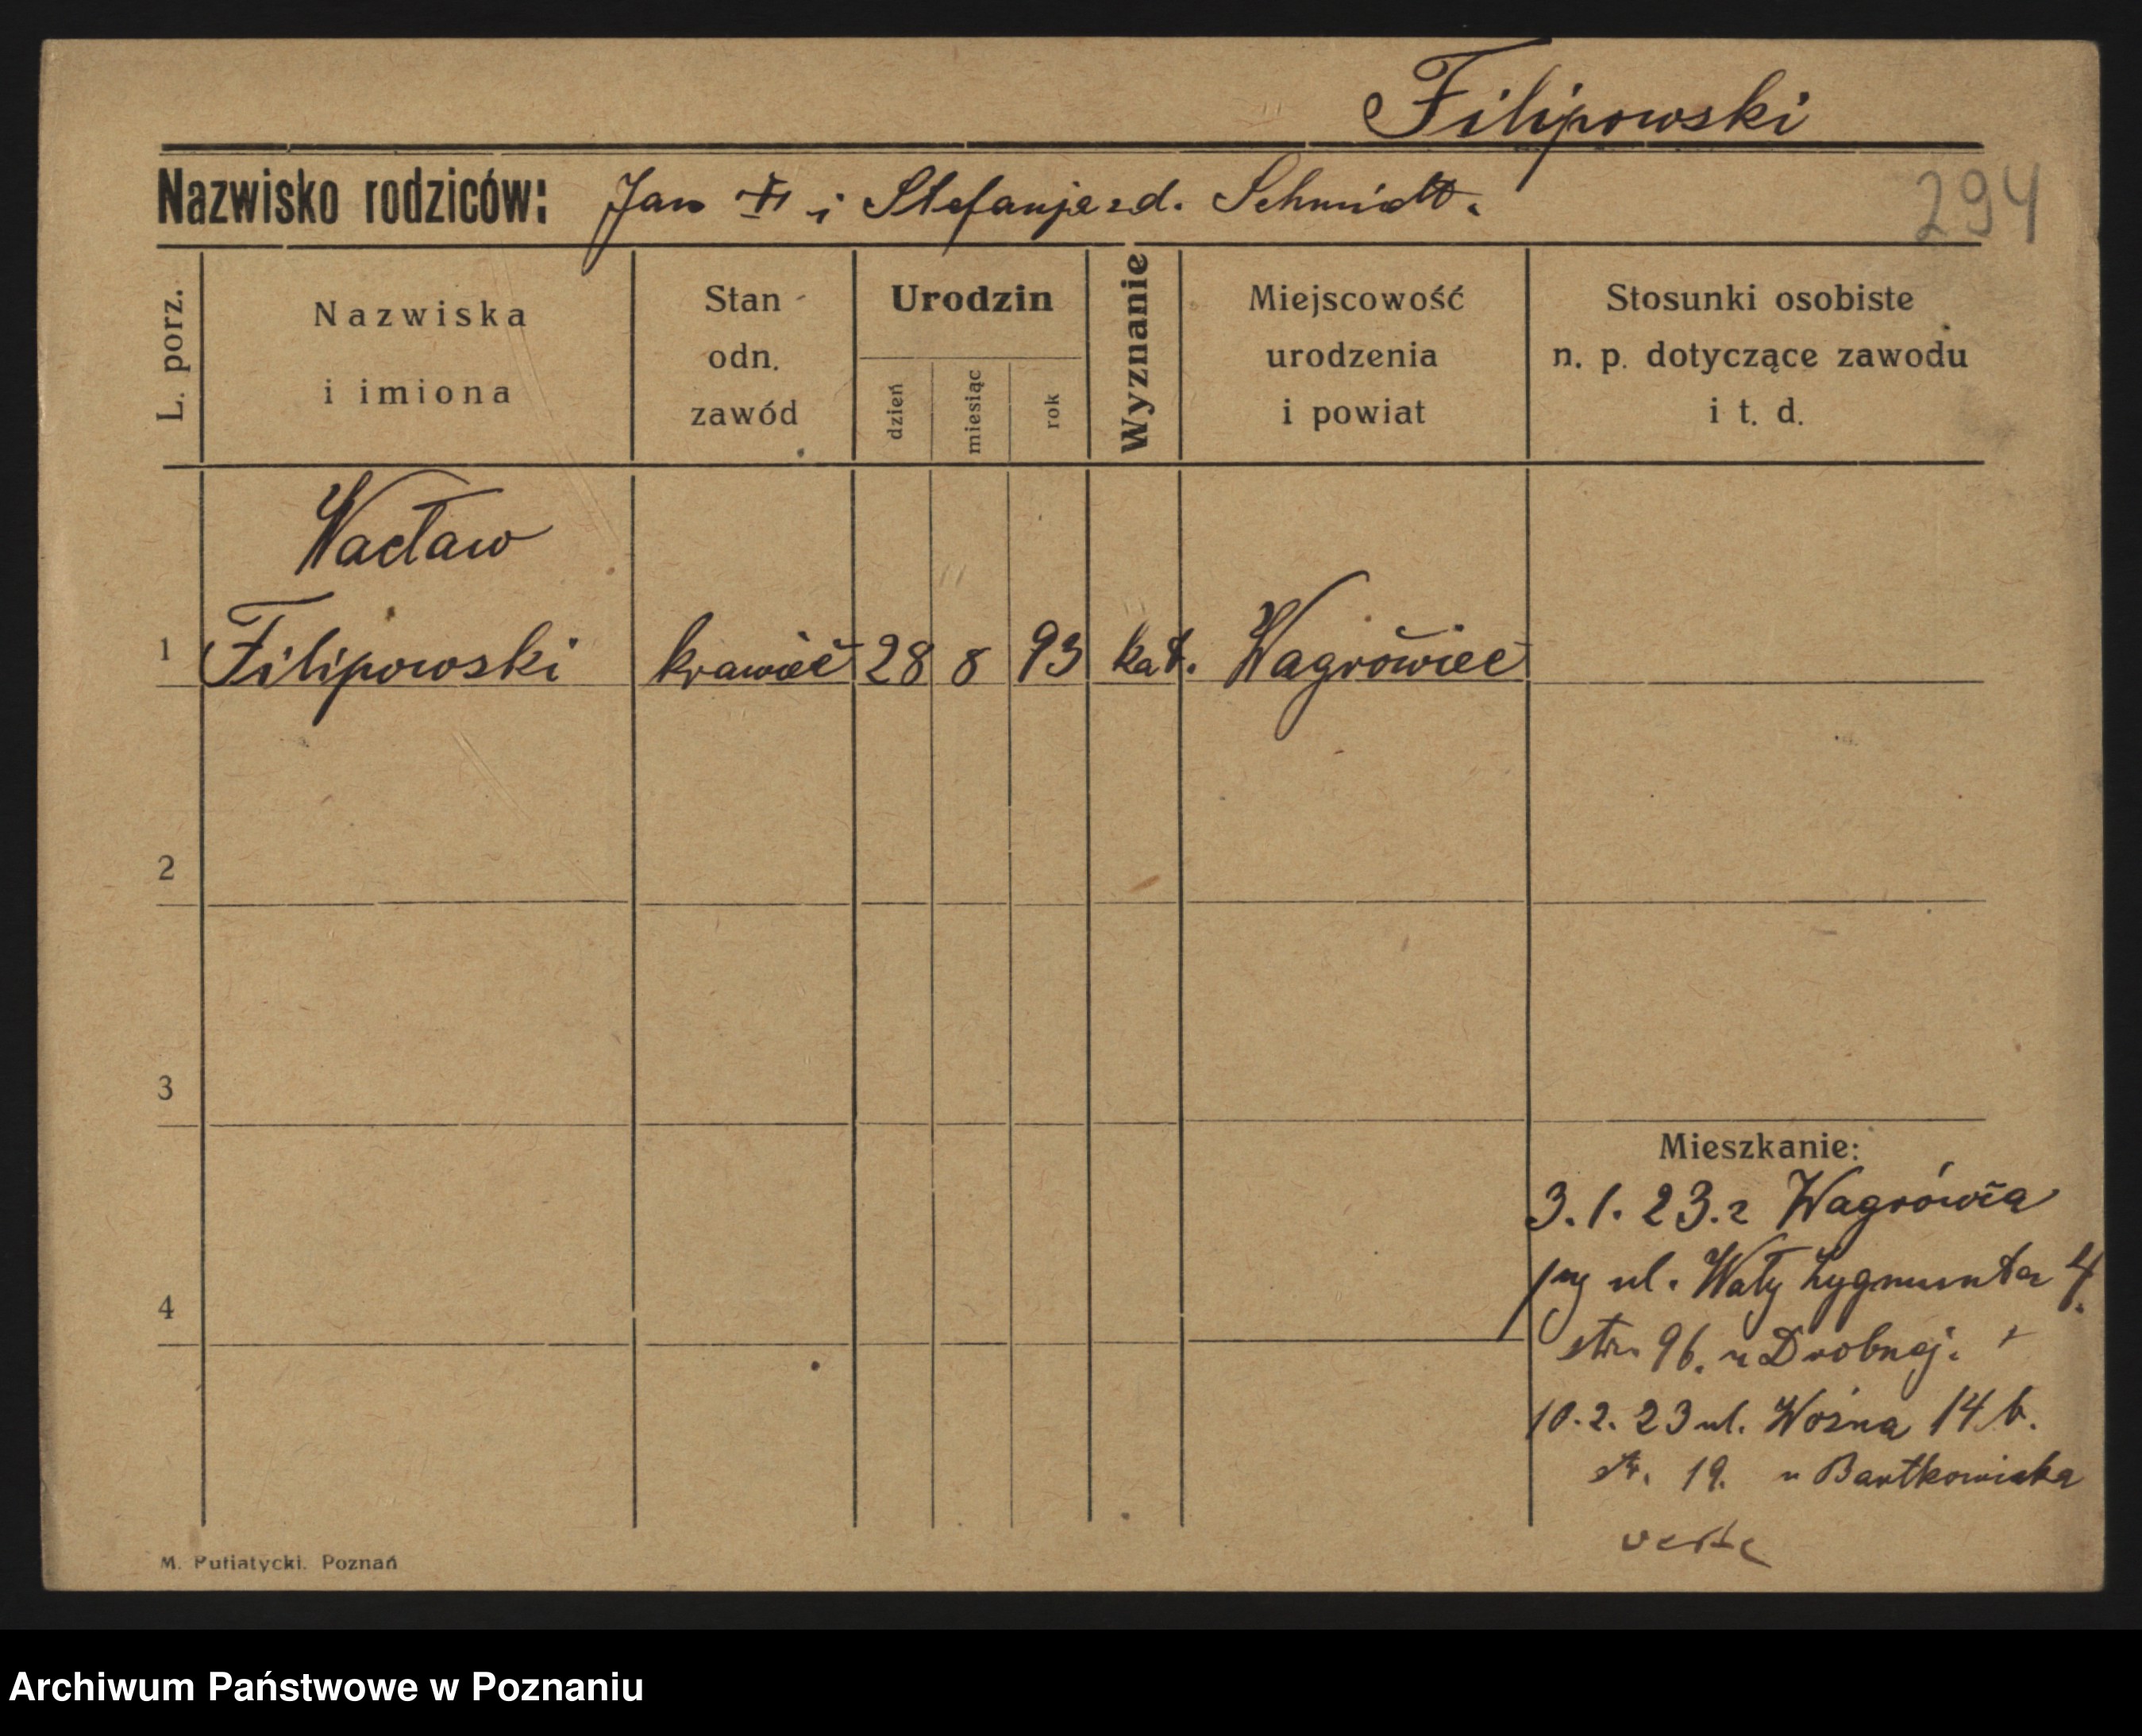 Filipowski
Nazwisko rodziców: Jan i Stefanja zd. Schmidt.
294
L. porz.
Nazwiska
i imiona
Stan
odn.
zawód
Urodzin
dzień
miesiąc
rok
Wyznanie
Miejscowość
urodzenia
i powiat
Stosunki osobiste
n. p. dotyczące zawodu
i t. d.
Wacław
1 Filipowski krawiec 28 8 93 kat. Wagrówiec
2
3
Mieszkanie:
3. 1. 23. z Wagrówca
4
ul. Wały Zygmunta 4.
str. 96. u Drobnej.
10. 2. 23 ul. Woźna 14 b.
str. 19. u Bartkowiaka
verte
M. Putiatycki. Poznań
Archiwum Państwowe w Poznaniu